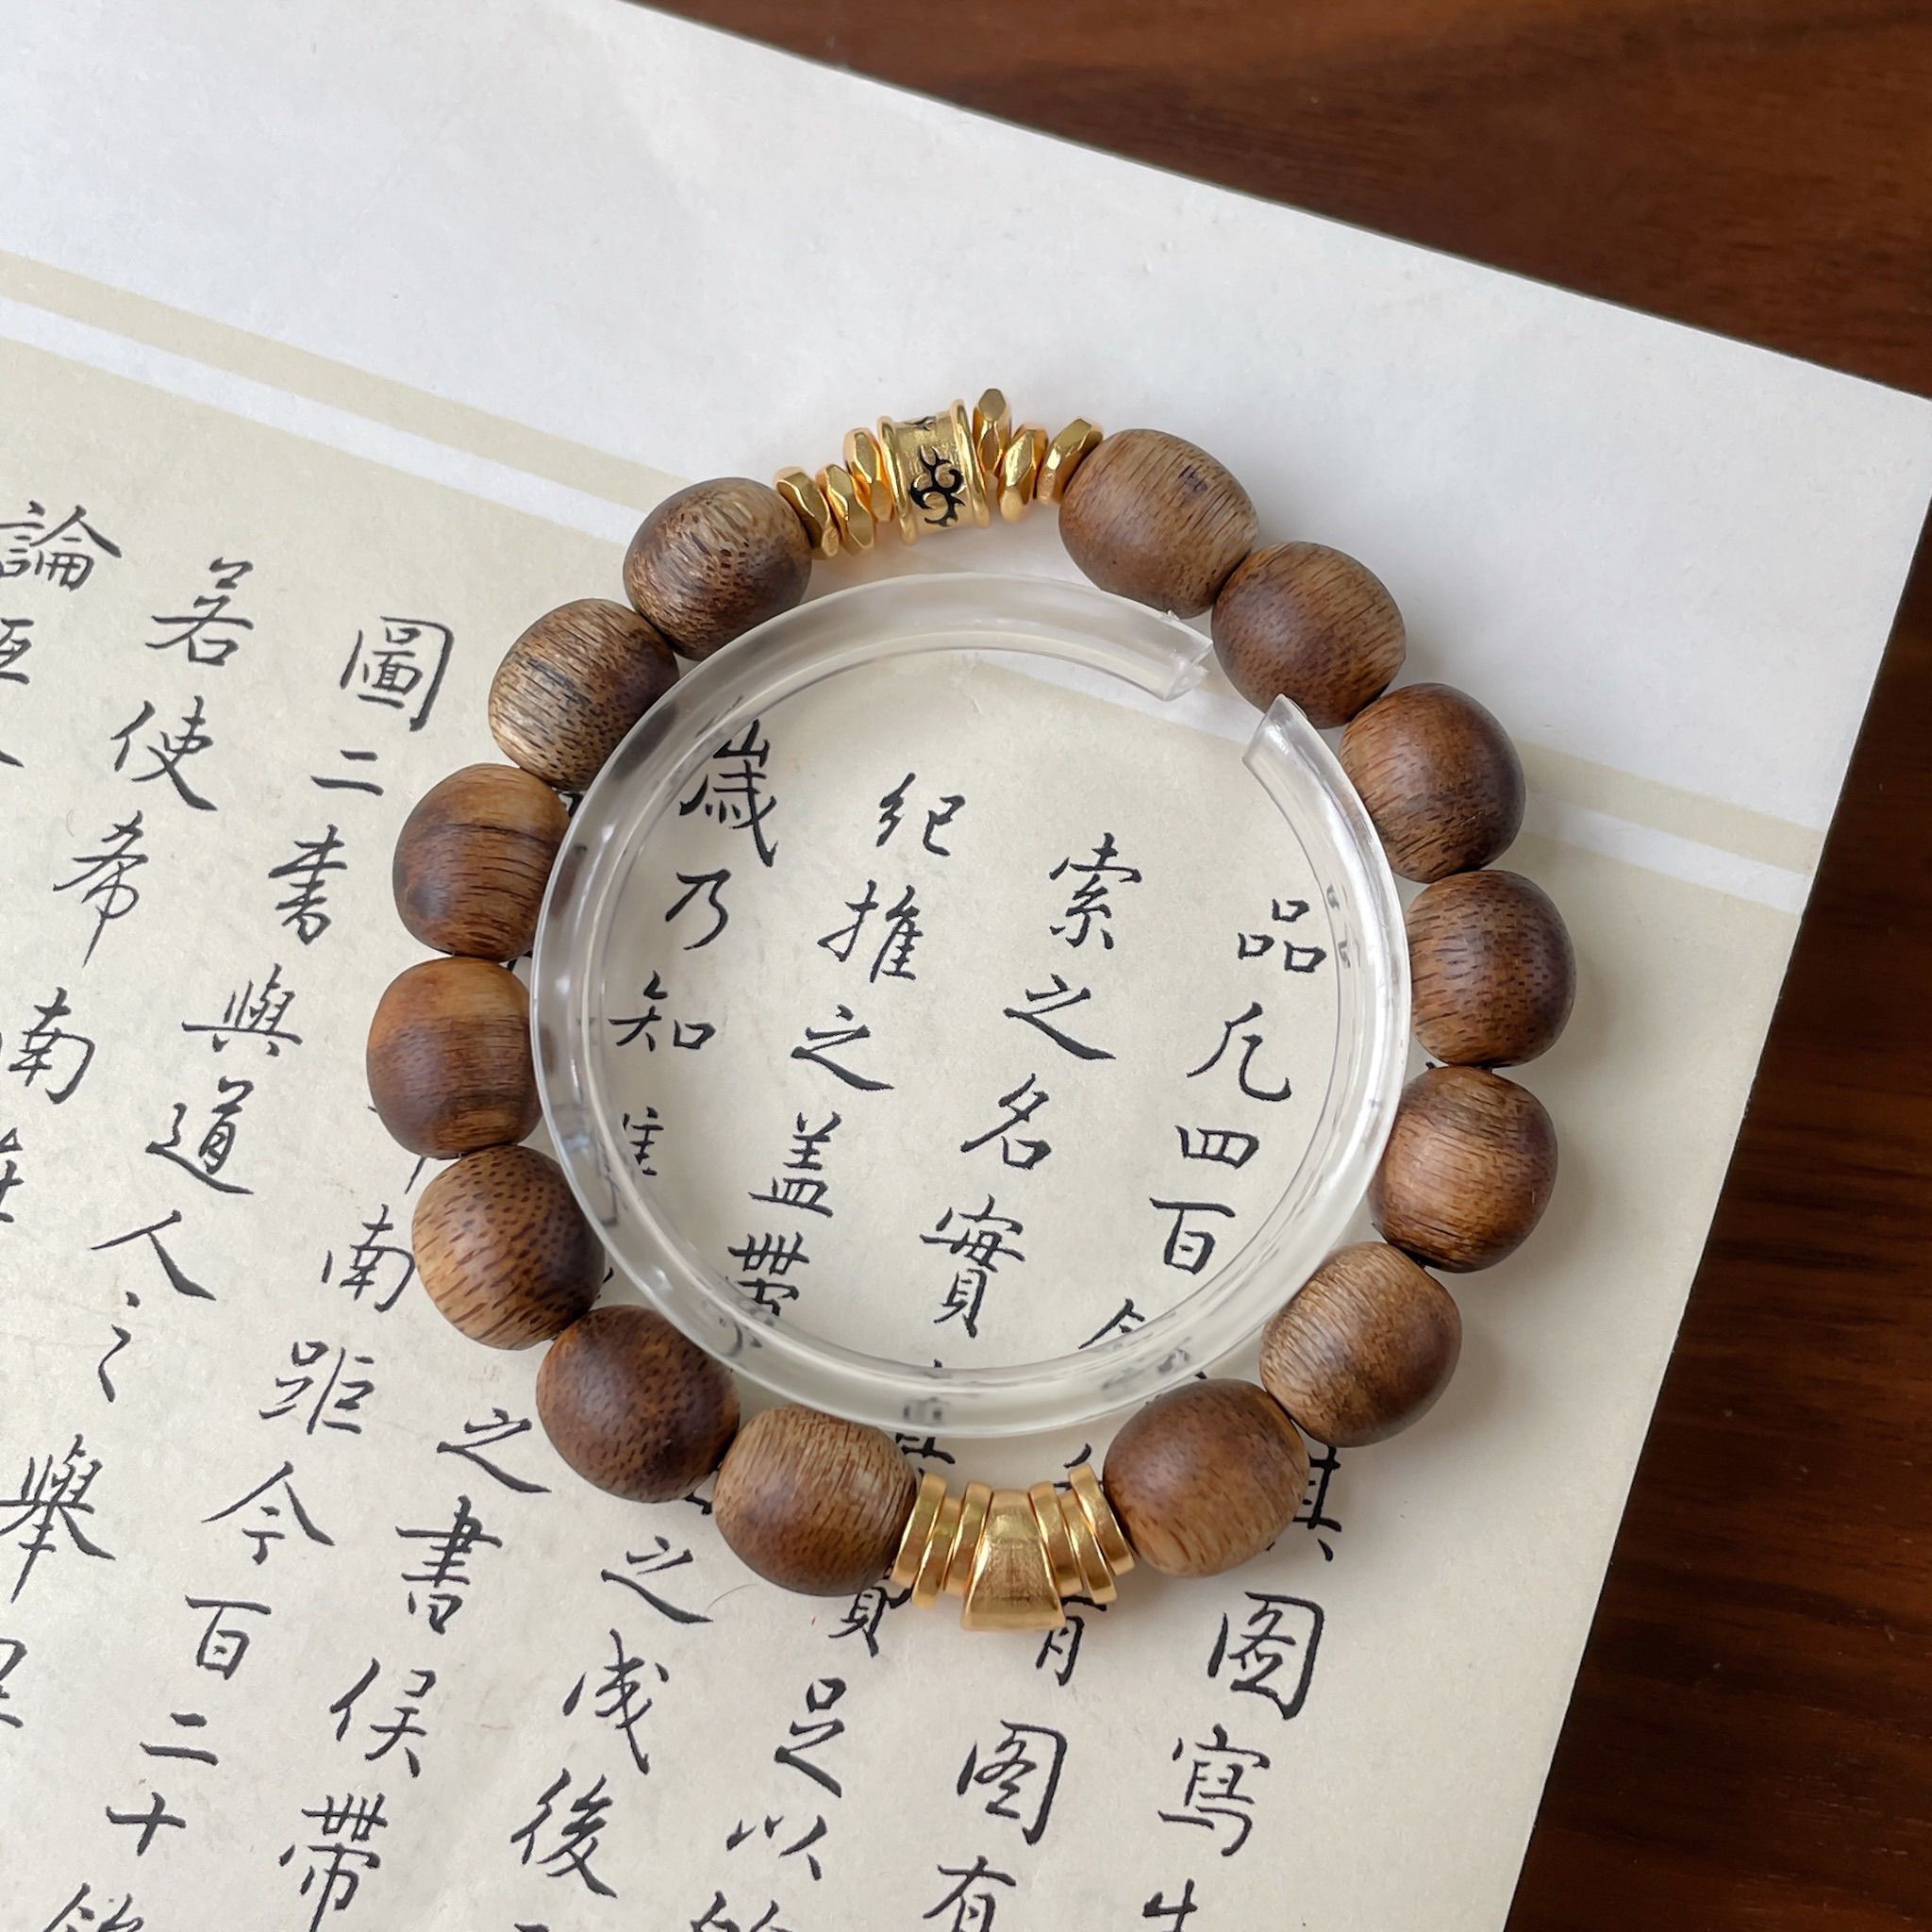 其图寫生
品凡四百 有图有
索之名實 實足以的
紀推之盖帶 之成後
歲乃知 之書侯帶
南距今百二十
圖二書與道人之舉
若使希南
論